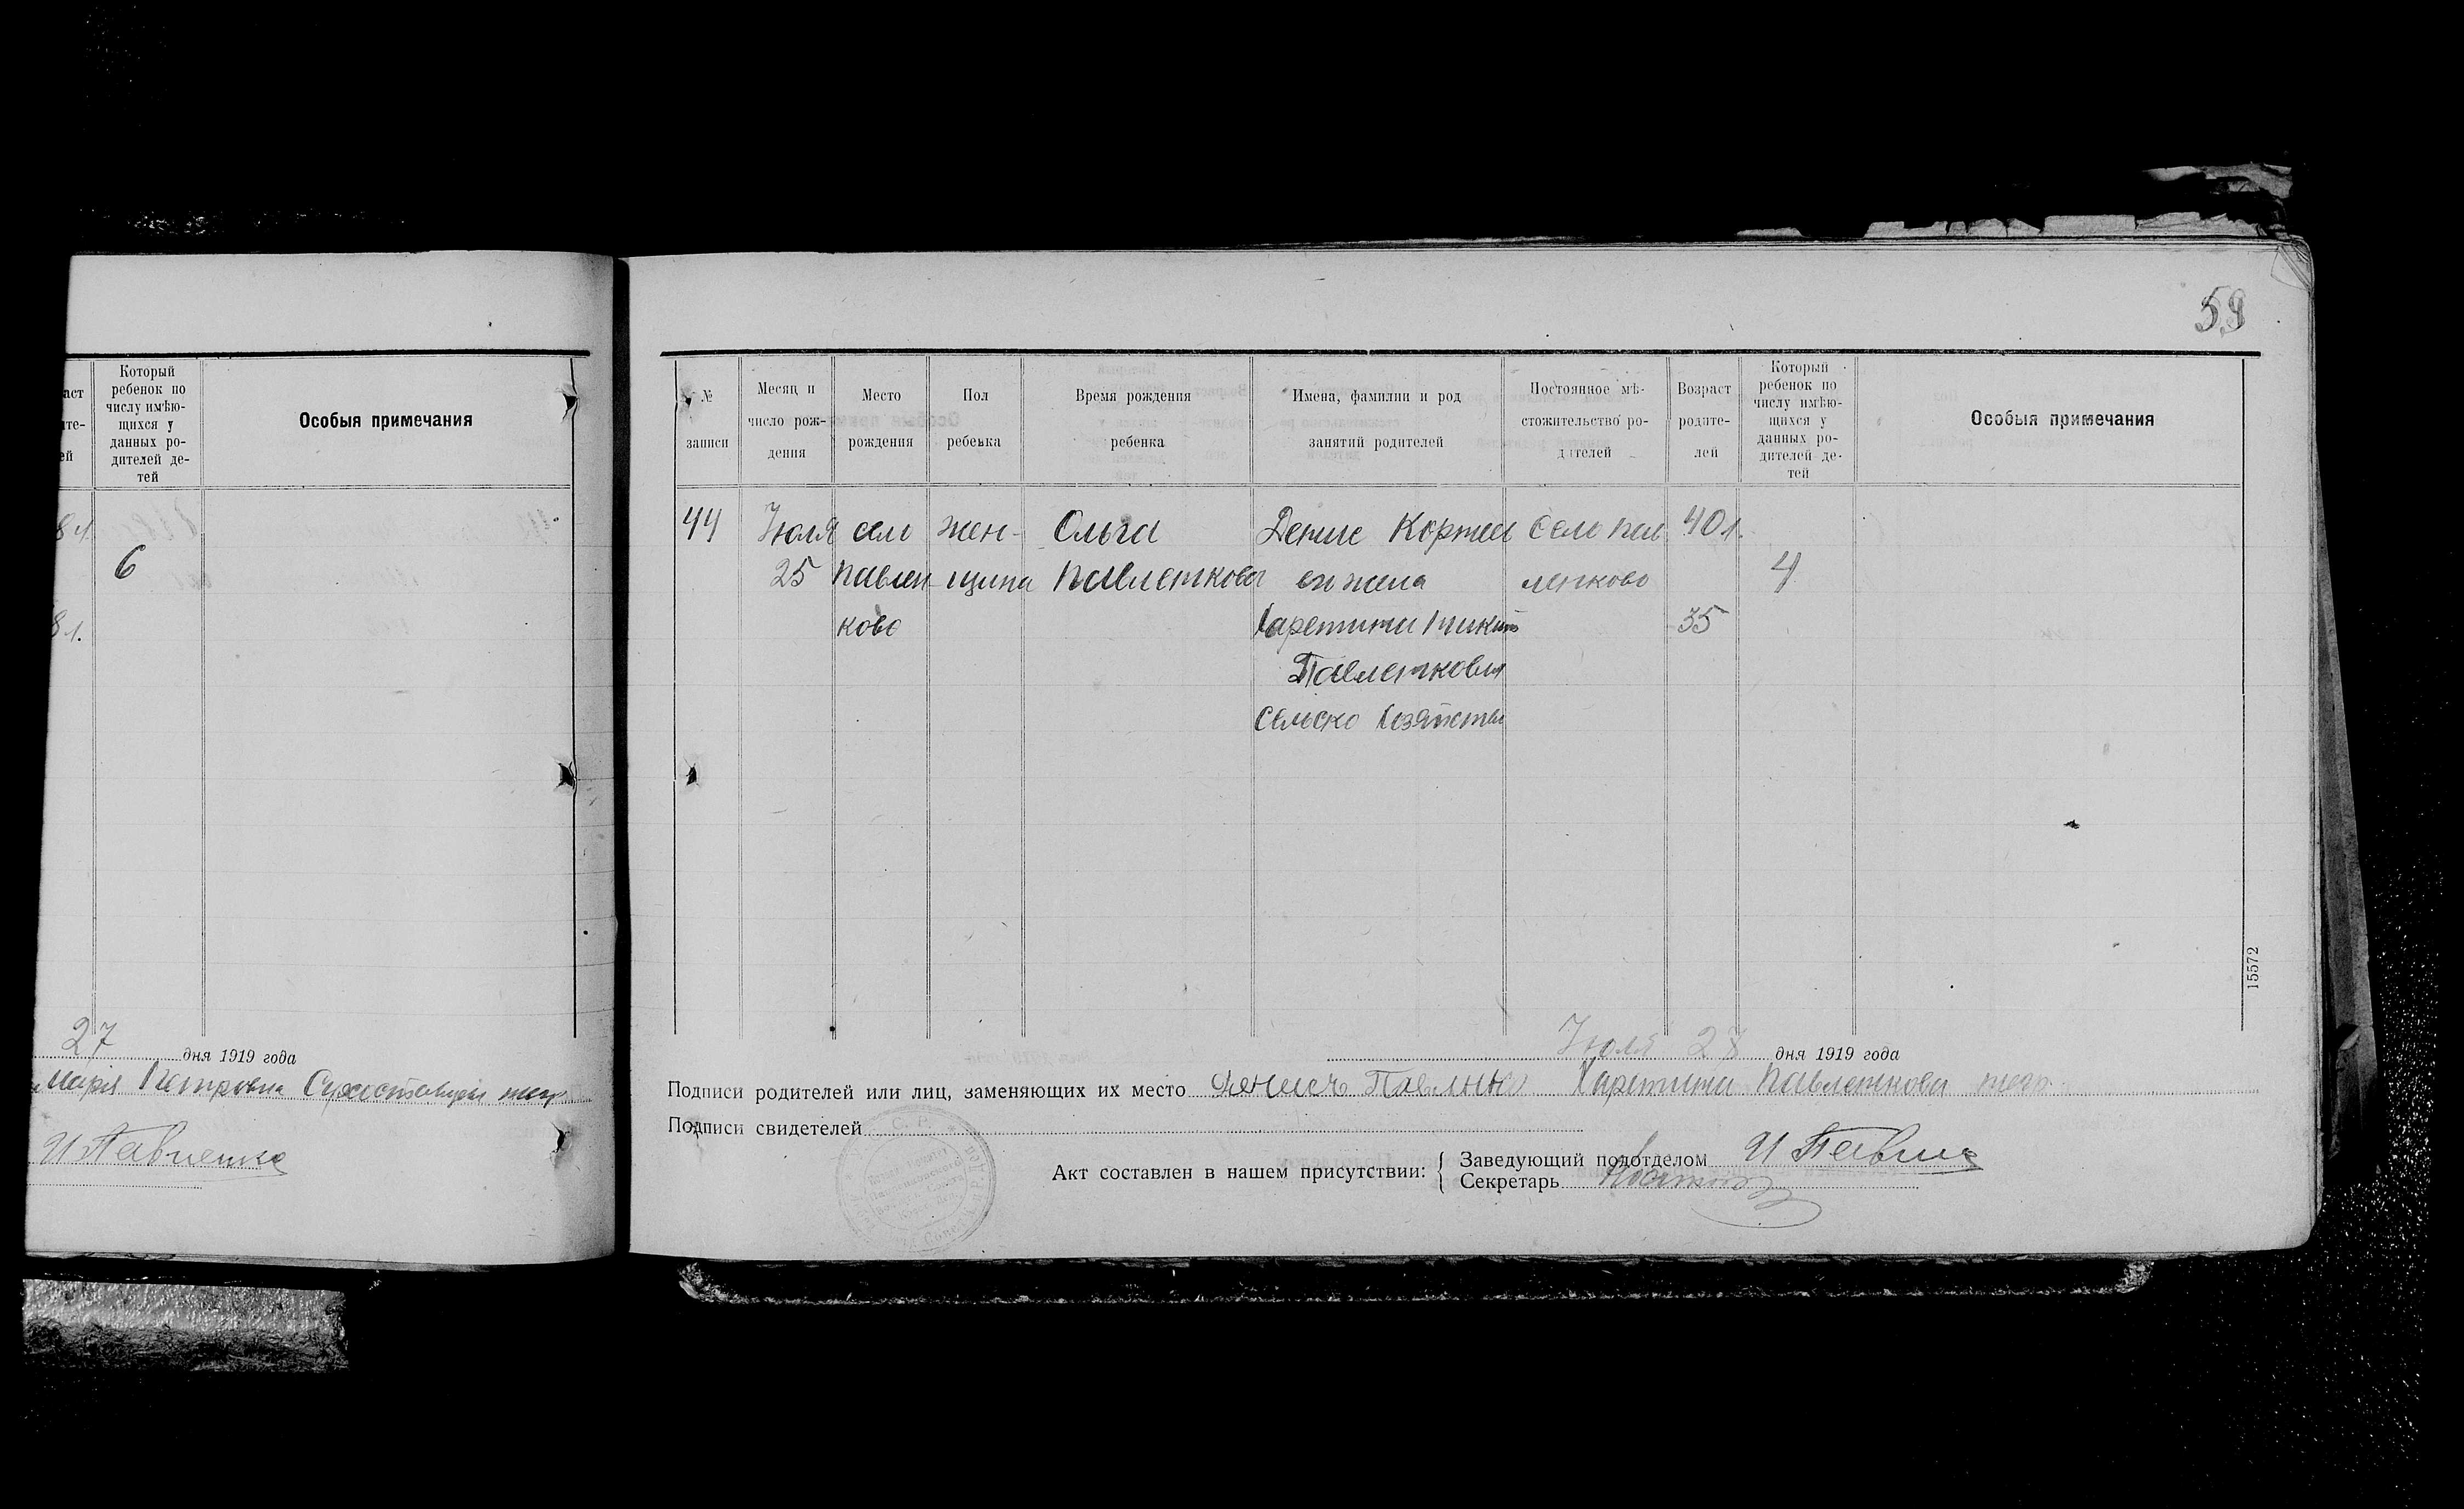 аст
ите-
ей
Который
ребенок по
числу имѣю-
щихся у
данных ро-
дителей де-
тей
Особыя примечания
8 л.
6
8 л.
27
дня 1919 года
Мария Петровна
И Павленко
59
№
записи
Месяц и
число рож-
дения
Место
рождения
Пол
ребенка
Время рождения
ребенка
Имена, фамилии и род
занятий родителей
Постоянное мѣ-
стожительство ро-
дителей
Возраст
родите-
лей
Который
ребенок по
числу имѣю-
щихся у
данных ро-
дителей де-
тей
Особыя примечания
44 Июля село жен- Ольга Денис Корнеев село Пав 40 л.
25 Павлен щина Павленкова его жена ленково 4
ково Харетина Никит 35
Павленкова
Сельско Хозяйства
15572
Июля 28 дня 1919 года
Подписи родителей или лиц, заменяющих их место Денисъ Павленко Харетина Павленкова негр.
Подписи свидетелей
Акт составлен в нашем присутствии:
Заведующий подотделом И Павлен
Секретарь